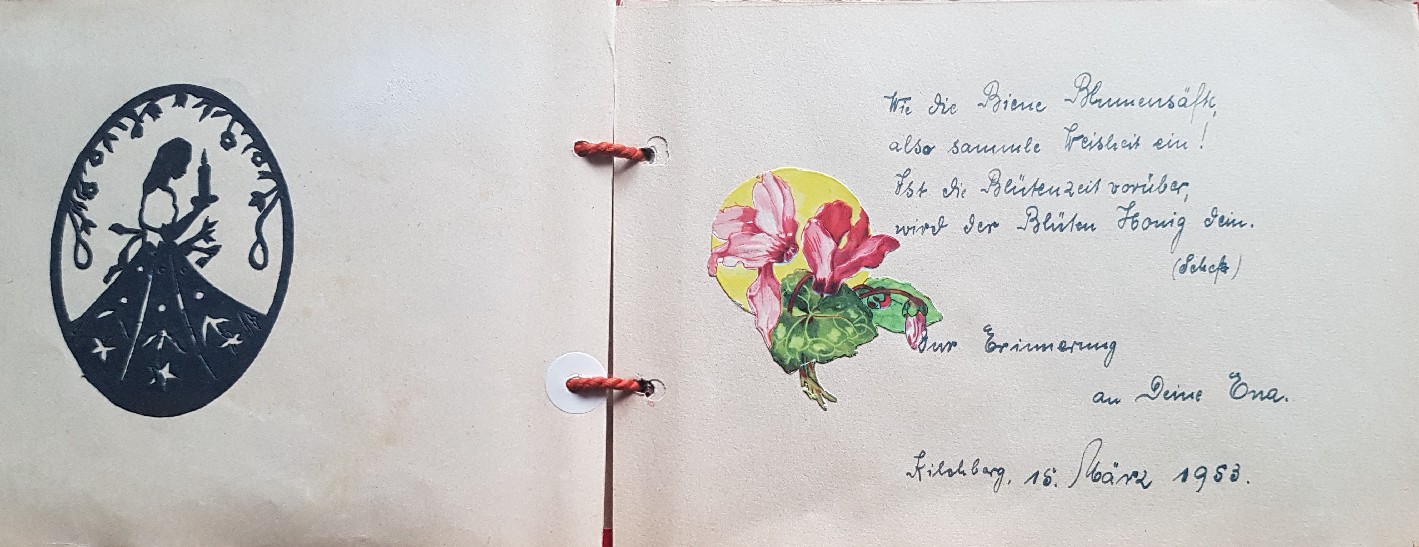 Wie die Biene Blumensäfte,
also sammle Weisheit ein!
Ist die Blütenzeit vorüber,
wird der Blüten Honig dein.
Zur Erinnerung
an Deine Ena.
Kilchberg, 15. März 1953.